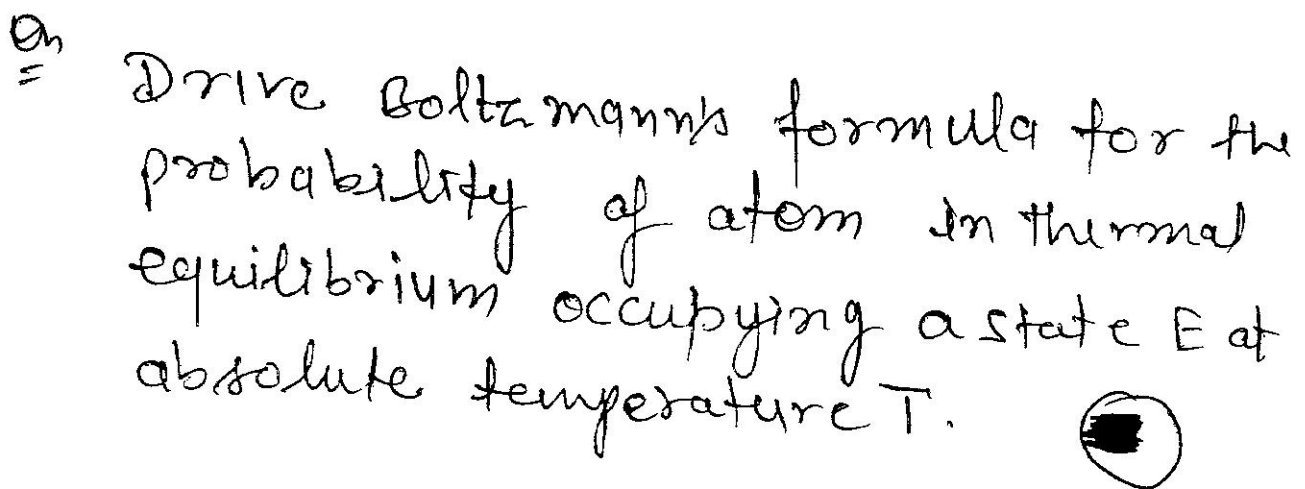 Qn
Drive Boltzmann's formula for the
probability of atom in thermal
equilibrium occupying a state E at
absolute temperature T.